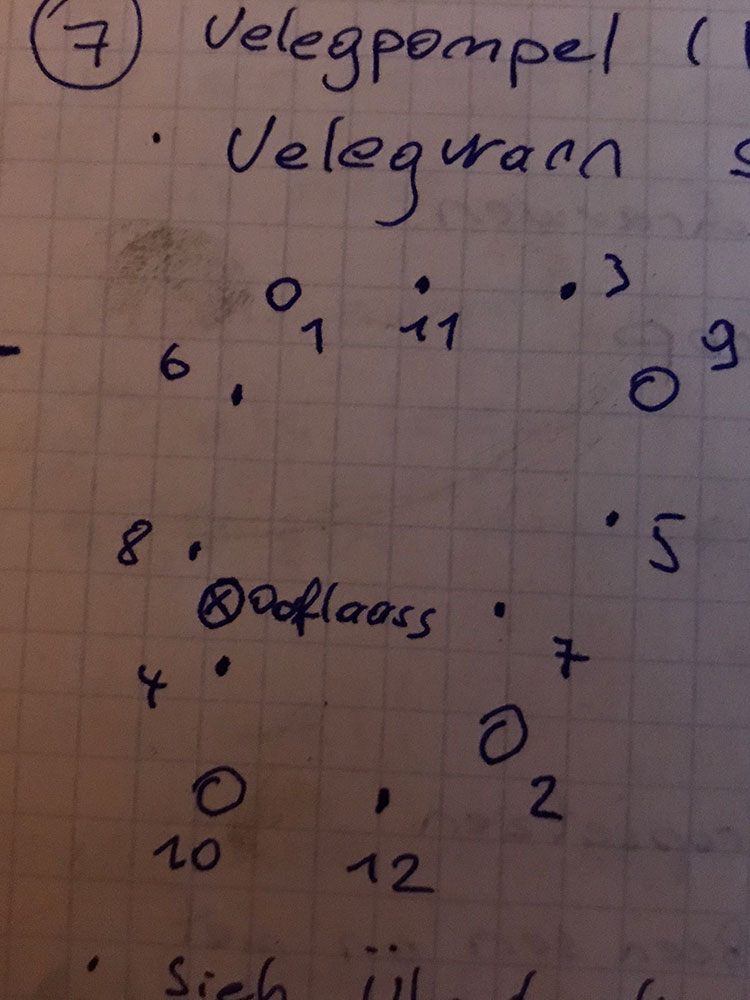 7 Uelegpompel (
· Uelegwann S
1 11 3
9
6
8 5
⊗ Ooflaass
7
4
2
10 12
· Sieh